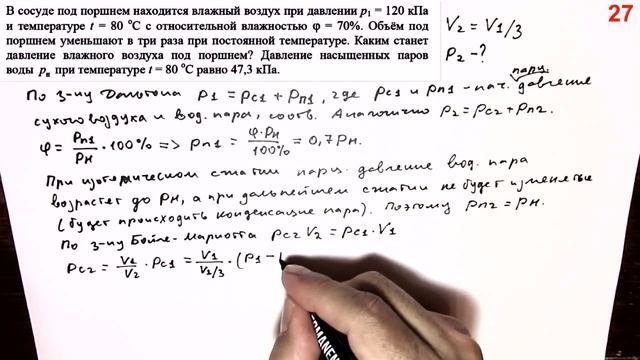 В сосуде под поршнем находится влажный воздух при давлении p₁ = 120 кПа
и температуре t = 80 °С с относительной влажностью φ = 70%. Объём под
поршнем уменьшают в три раза при постоянной температуре. Каким станет
давление влажного воздуха под поршнем? Давление насыщенных паров
воды pн при температуре t = 80 °С равно 47,3 кПа.
27
V2 = V1/3
P2 - ?
По з-ну Дальтона P1 = Pc1 + Pп1, где Pc1 и Pп1 - нач. парц. давление
сухого воздуха и вод. пара, соотв. Аналогично P2 = Pc2 + Pп2.
φ = Pп1/Pн · 100% => Pп1 = φ·Pн/100% = 0,7Pн.
При изотермическом сжатии парц. давление вод. пара
возрастет до Pн, а при дальнейшем сжатии не будет изменяться
(будет происходить конденсация пара). Поэтому Pп2 = Pн.
По з-ну Бойля-Мариотта Pc2 V2 = Pc1 · V1
Pc2 = V1/V2 · Pc1 = V1/V1/3 · (P1 -
PERMANEN